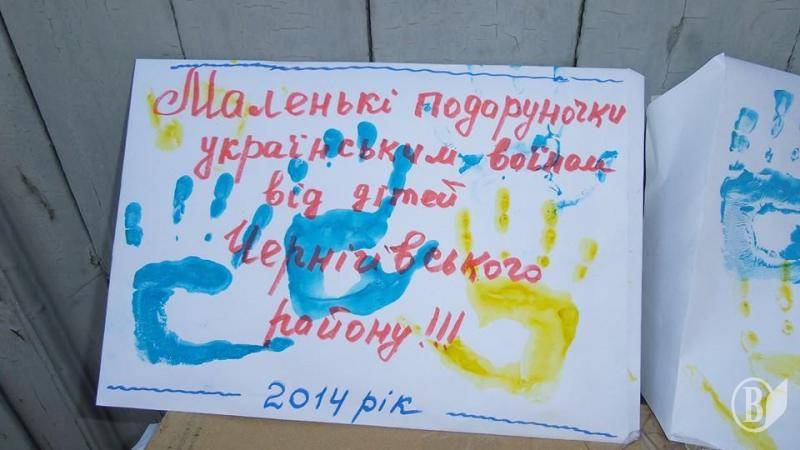 Маленькі подаруночки
українським воїнам
від дітей
Чернігівського
району!!!
2014 рік
В